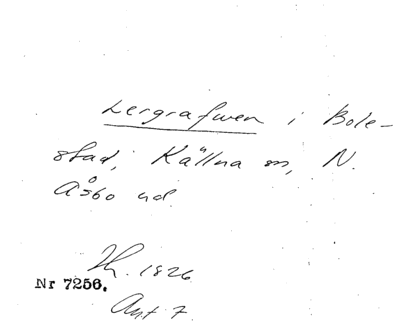 Lergrafwen i Bole-
stad, Källna sn, N.
Åsbo hd
Th. 1826
Nr 7256.
Ant 7